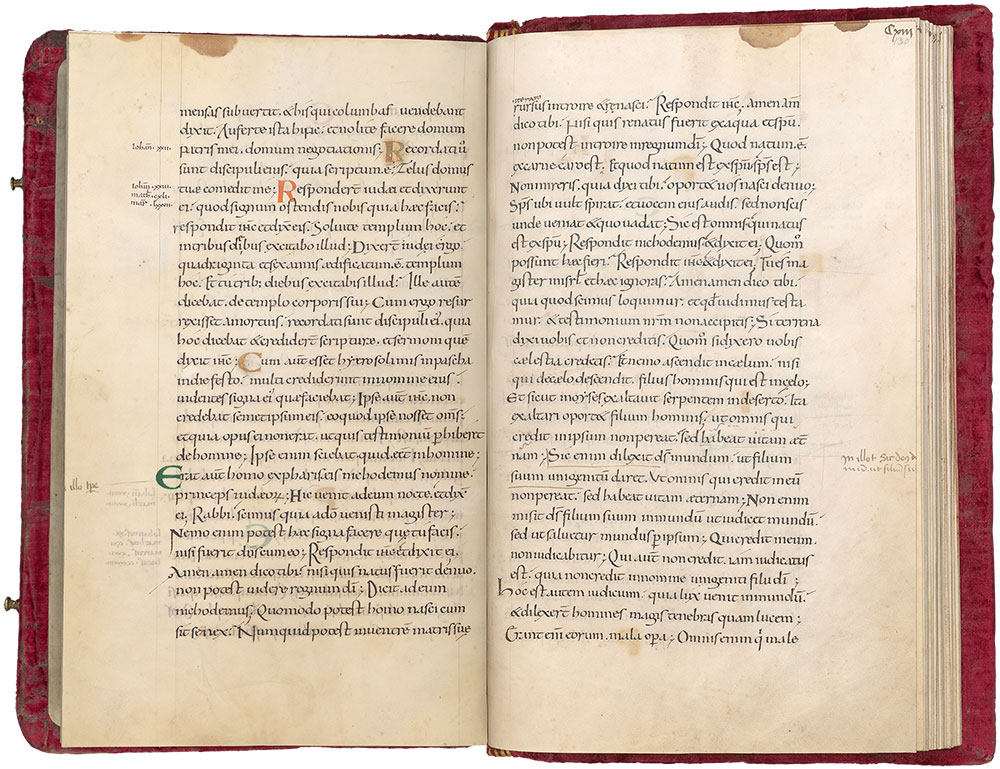 mensas subuertit. & his qui columbas uendebant
dixit. Auferte ista hinc. et nolite facere domum
patris mei. domum negotiationis; Recordati ū
sunt discipuli eius. quia scriptum. ē. Zelus domus
tuę comedit me; Responderunt iudei et dixerunt
ei. quod signum ostendis nobis quia hęc facis;
respondit ihc̄ et dixit eis. Soluite templum hoc. et
in tribus diebus excitabo illud; Dixert iudei ergo.
quadraginta et sex annis ædificatum. ē. templum
hoc. Et tu trib; diebus excitabis illud; Ille autē
dicebat. de templo corporis sui; Cum ergo resur
rexisset a mortuis. recordati sunt discipuli ei'. quia
hoc dicebat & credidert scripturę. et sermoni quē
dixit ihc̄; Cum aūt esset hyerosolimis in pascha
in die festo. multi crediderunt in nomine eius.
uidentes signa ei' quę faciebat; Ipse aūt ihc̄. non
credebat semetipsum eis. eo quod ipse nosset oms̄;
et quia opus ei non erat. ut quis testimoniū phiberet
de homine; Ipse enim sciebat quid eēt in homine;
Erat aūt homo ex phariseis nichodemus nomine
princeps iudeor; Hic uenit ad eum nocte. et dix̄
ei; Rabbi. scimus quia a dō uenisti magister;
Nemo enim potest hęc signa facere quę tu facis.
nisi fuerit dn̄s cum eo; Respondit ihc̄ & dixit ei.
Amen. amen dico tibi. nisi quis natus fuerit denuo.
non potest uidere regnum dī; Dicit ad eum
nichodemus; Quomodo potest homo nasci cum
sit senex; Numquid potest in uentrē matris suę
Iohan̄. xxii.
Iohan̄. xxiii.
illo tp̄e
Cxiii
130
iterato
rursus introire & renasci; Respondit ihc̄. amen am̄
dico tibi. Nisi quis renatus fuerit ex aqua et sp̄u.
non potest introire in regnum dī; Quod natum. ē.
ex carne caro est. Et quod natum est ex sp̄u sp̄s est;
Non mireris. quia dixi tibi. oportet uos nasci denuo;
Sp̄s ubi uult spirat. et uocem eius audis. sed non scis
unde ueniat & quo uadat; Sic est omnis qui natus
est ex sp̄u; Respondit nichodemus & dixit ei. Quom̄
possunt hęc fieri; Respondit ihc̄ & dixit ei. Tu es ma
gister in isrl̄ et hęc ignoras; Amen amen dico tibi.
quia quod scimus loquimur. et qd uidimus testa
mur. & testimonium nr̄m non accipitis; Si terrena
dixi uobis et non creditis. Quom̄ si dixero uobis
cælestia credetis; Et nemo ascendit in cælum. nisi
qui de cælo descendit. filius hominis qui est in celo;
Et sicut moyses exaltauit serpentem in deserto. Ita
exaltari oportet filium hominis. ut omnis qui
credit in ipsum non pereat. sed habeat uitam æt
nam; Sic enim dilexit ds̄ mundum. ut filium
suum unigenitū diret. Ut omnis qui credit in eū
non pereat. sed habeat uitam æternam; Non enim
misit ds̄ filium suum in mundū ut iudicet mundū.
sed ut saluetur mundus p̄ ipsum; Qui credit in eum.
non iudicabitur; Qui aūt non credit. iam iudicatus
est. quia non credit in nomine unigeniti filii dī;
Hoc est autem iudicium. quia lux uenit in mundū.
& dilexert homines magis tenebras quam lucem;
Erant em̄ eorum. mala opa; Omnis enim q̇ male
In illo t̄ Sic deus d